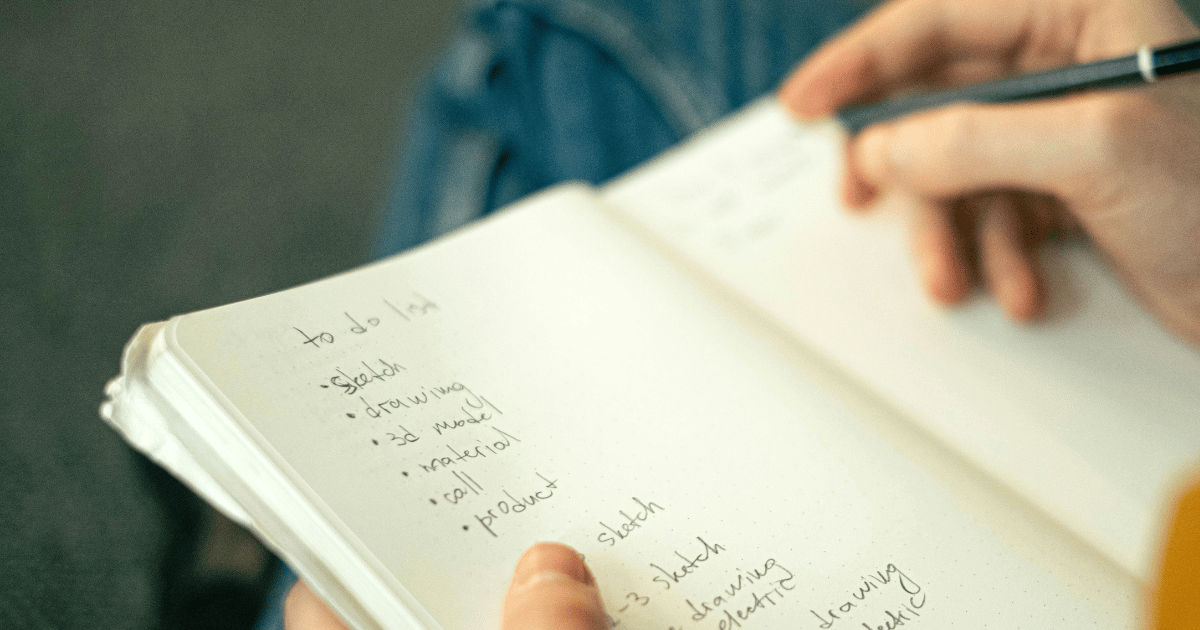 to do list
• sketch
• drawing
• 3d model
• material
• call
• product
sketch
-3 sketch
drawing
electric
drawing